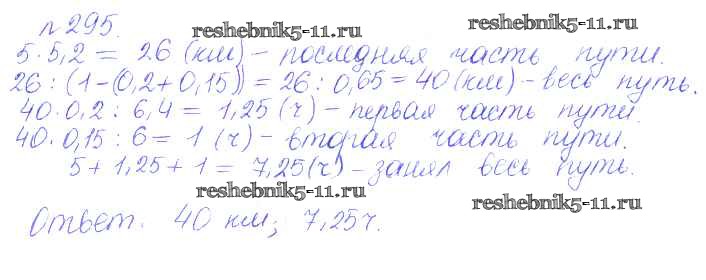 №295. reshebnik5-11.ru reshebnik5-11.ru
5·5,2 = 26 (км) - последняя часть пути.
26 : (1-(0,2+0,15)) = 26 : 0,65 = 40 (км) - весь путь.
40·0,2 : 6,4 = 1,25 (ч) - первая часть пути.
40·0,15 : 6 = 1 (ч) - вторая часть пути.
5 + 1,25 + 1 = 7,25 (ч) - занял весь путь.
reshebnik5-11.ru reshebnik5-11.ru
Ответ. 40 км; 7,25 ч.